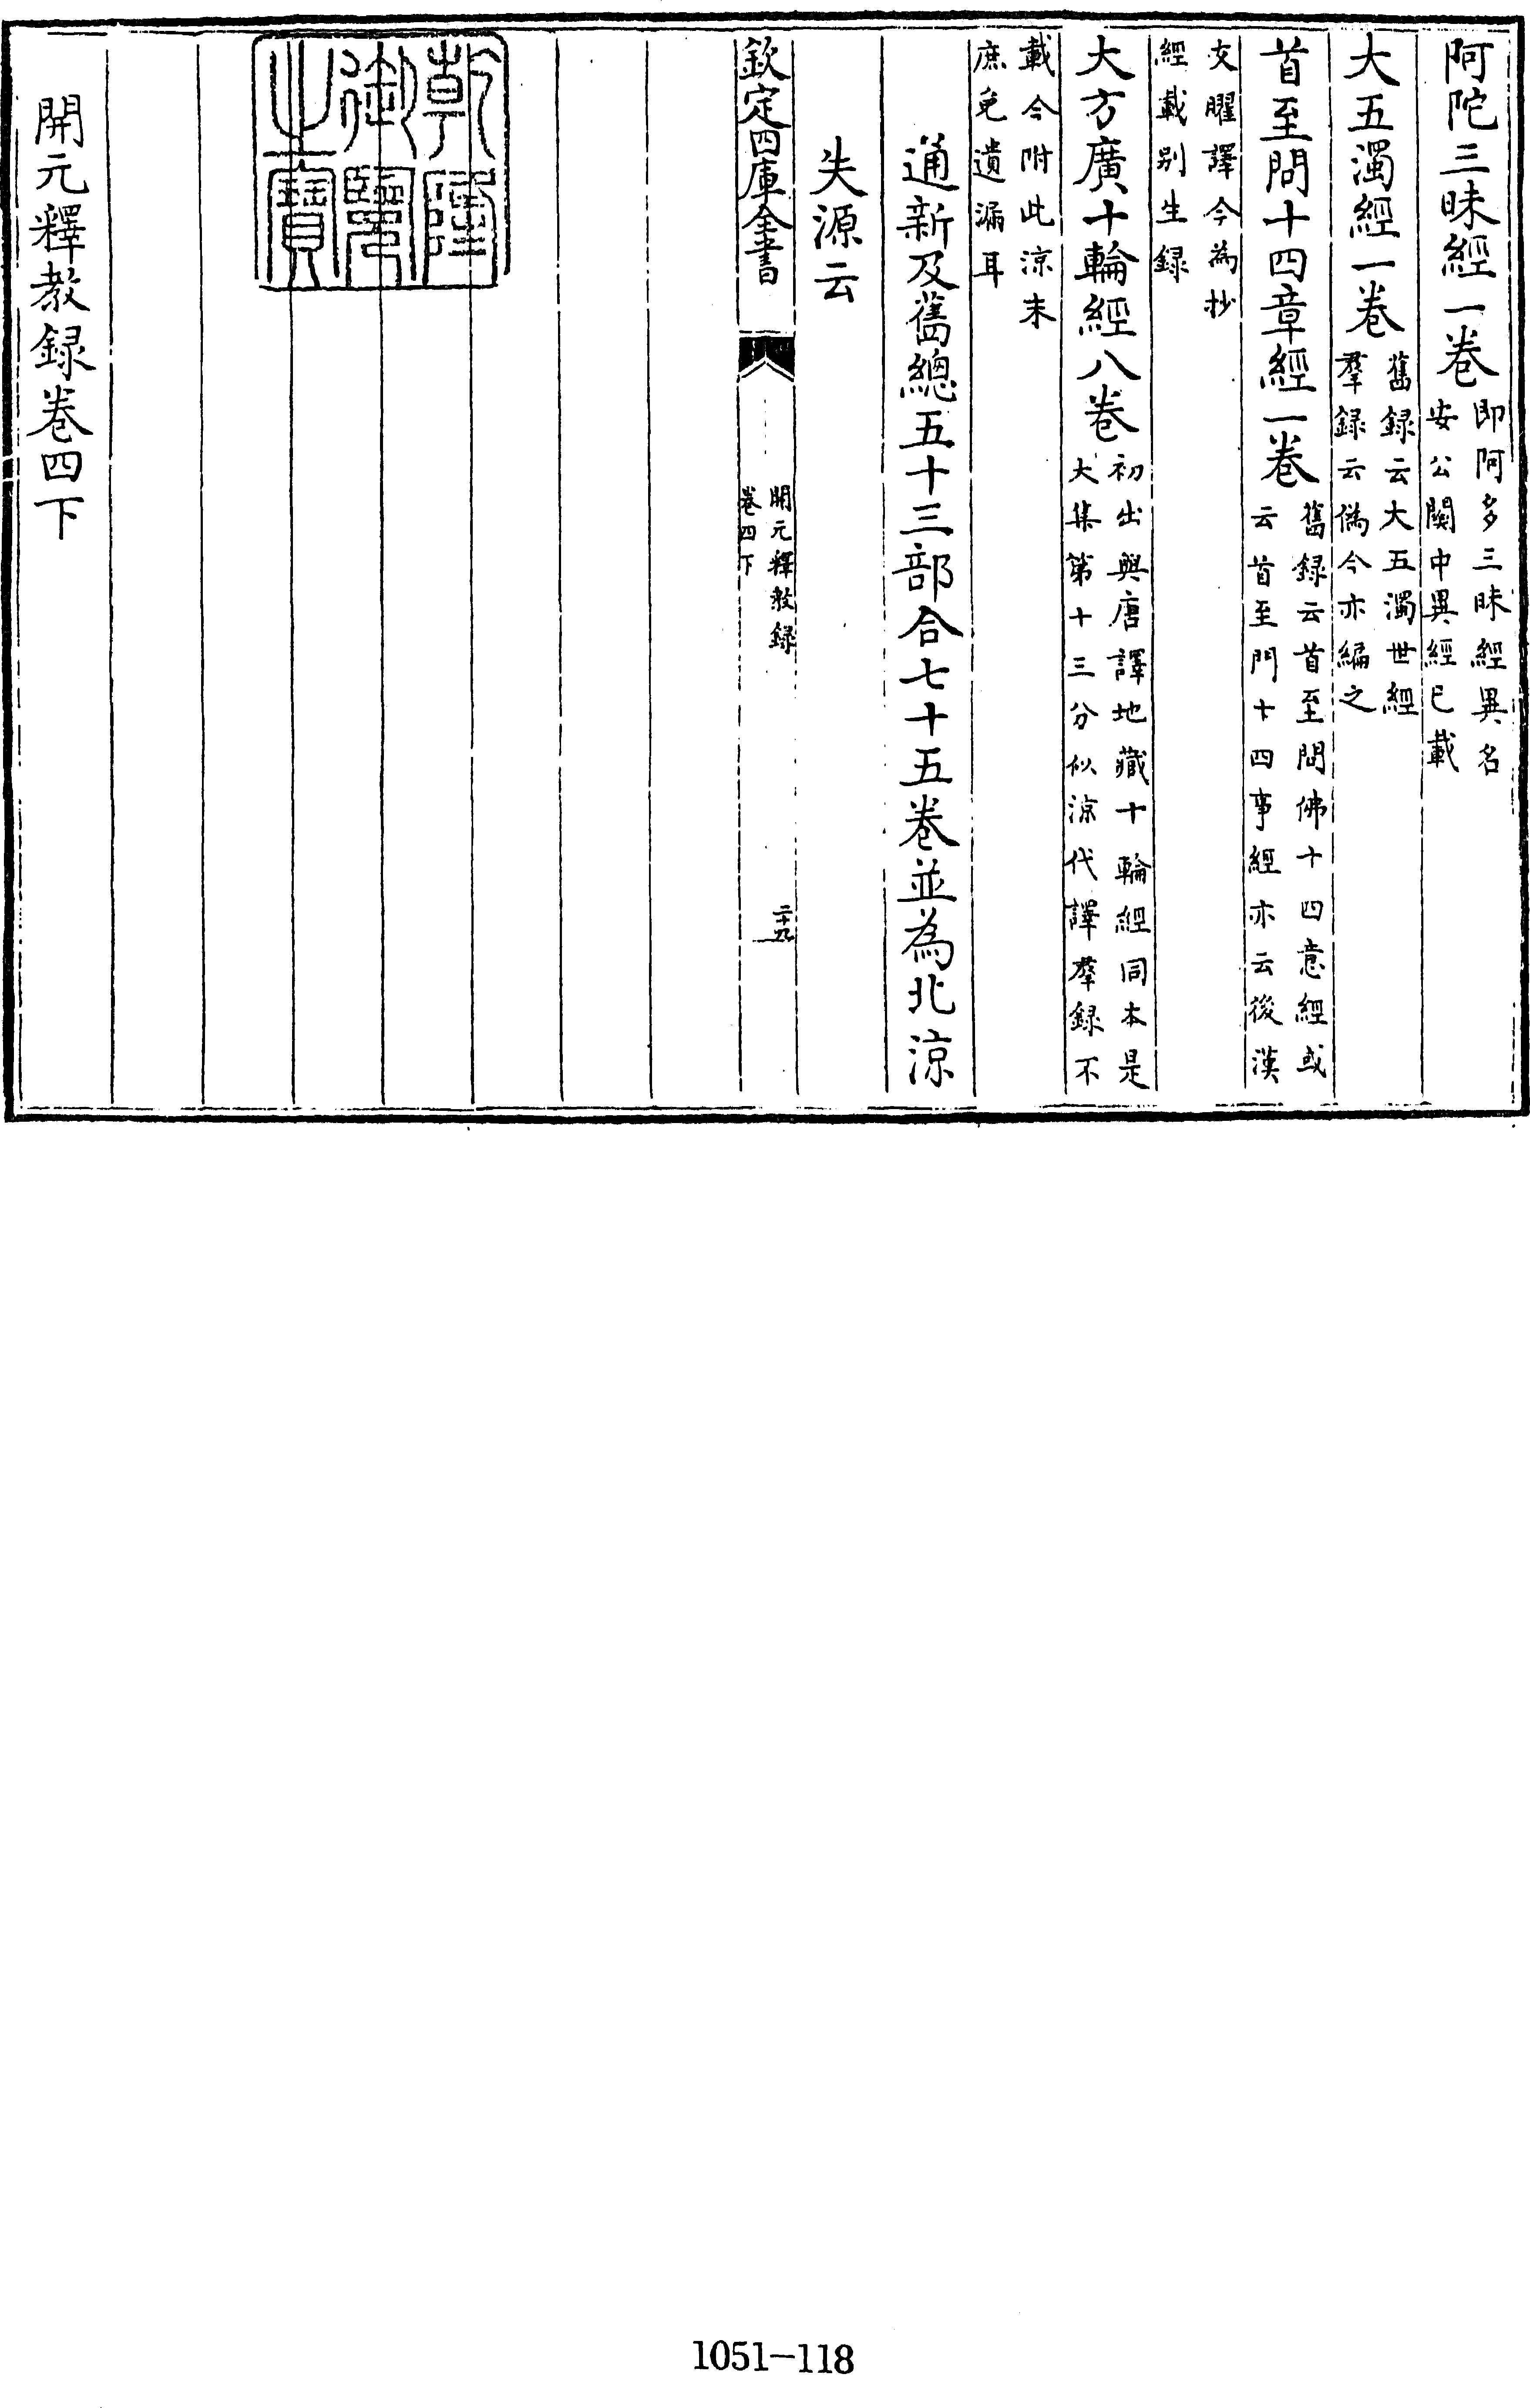 阿陀三昧經一卷即阿多三昧經異名安公關中異經已載
大五濁經一卷舊録云大五濁世經羣録云偽今亦編之
首至問十四章經一卷舊録云首至問佛十四意經或云首至門十四事經亦云後漢
支曜譯今為抄經載别生録
大方廣十輪經八卷初出與唐譯地藏十輪經同本是大集第十三分似涼代譯羣録不
載今附此涼末庶免遺漏耳
通新及舊總五十三部合七十五卷並為北涼
失源云
欽定四庫全書
開元釋教録
卷四下
二十九
乾隆御覽之寶
開元釋教録卷四下
1051-118